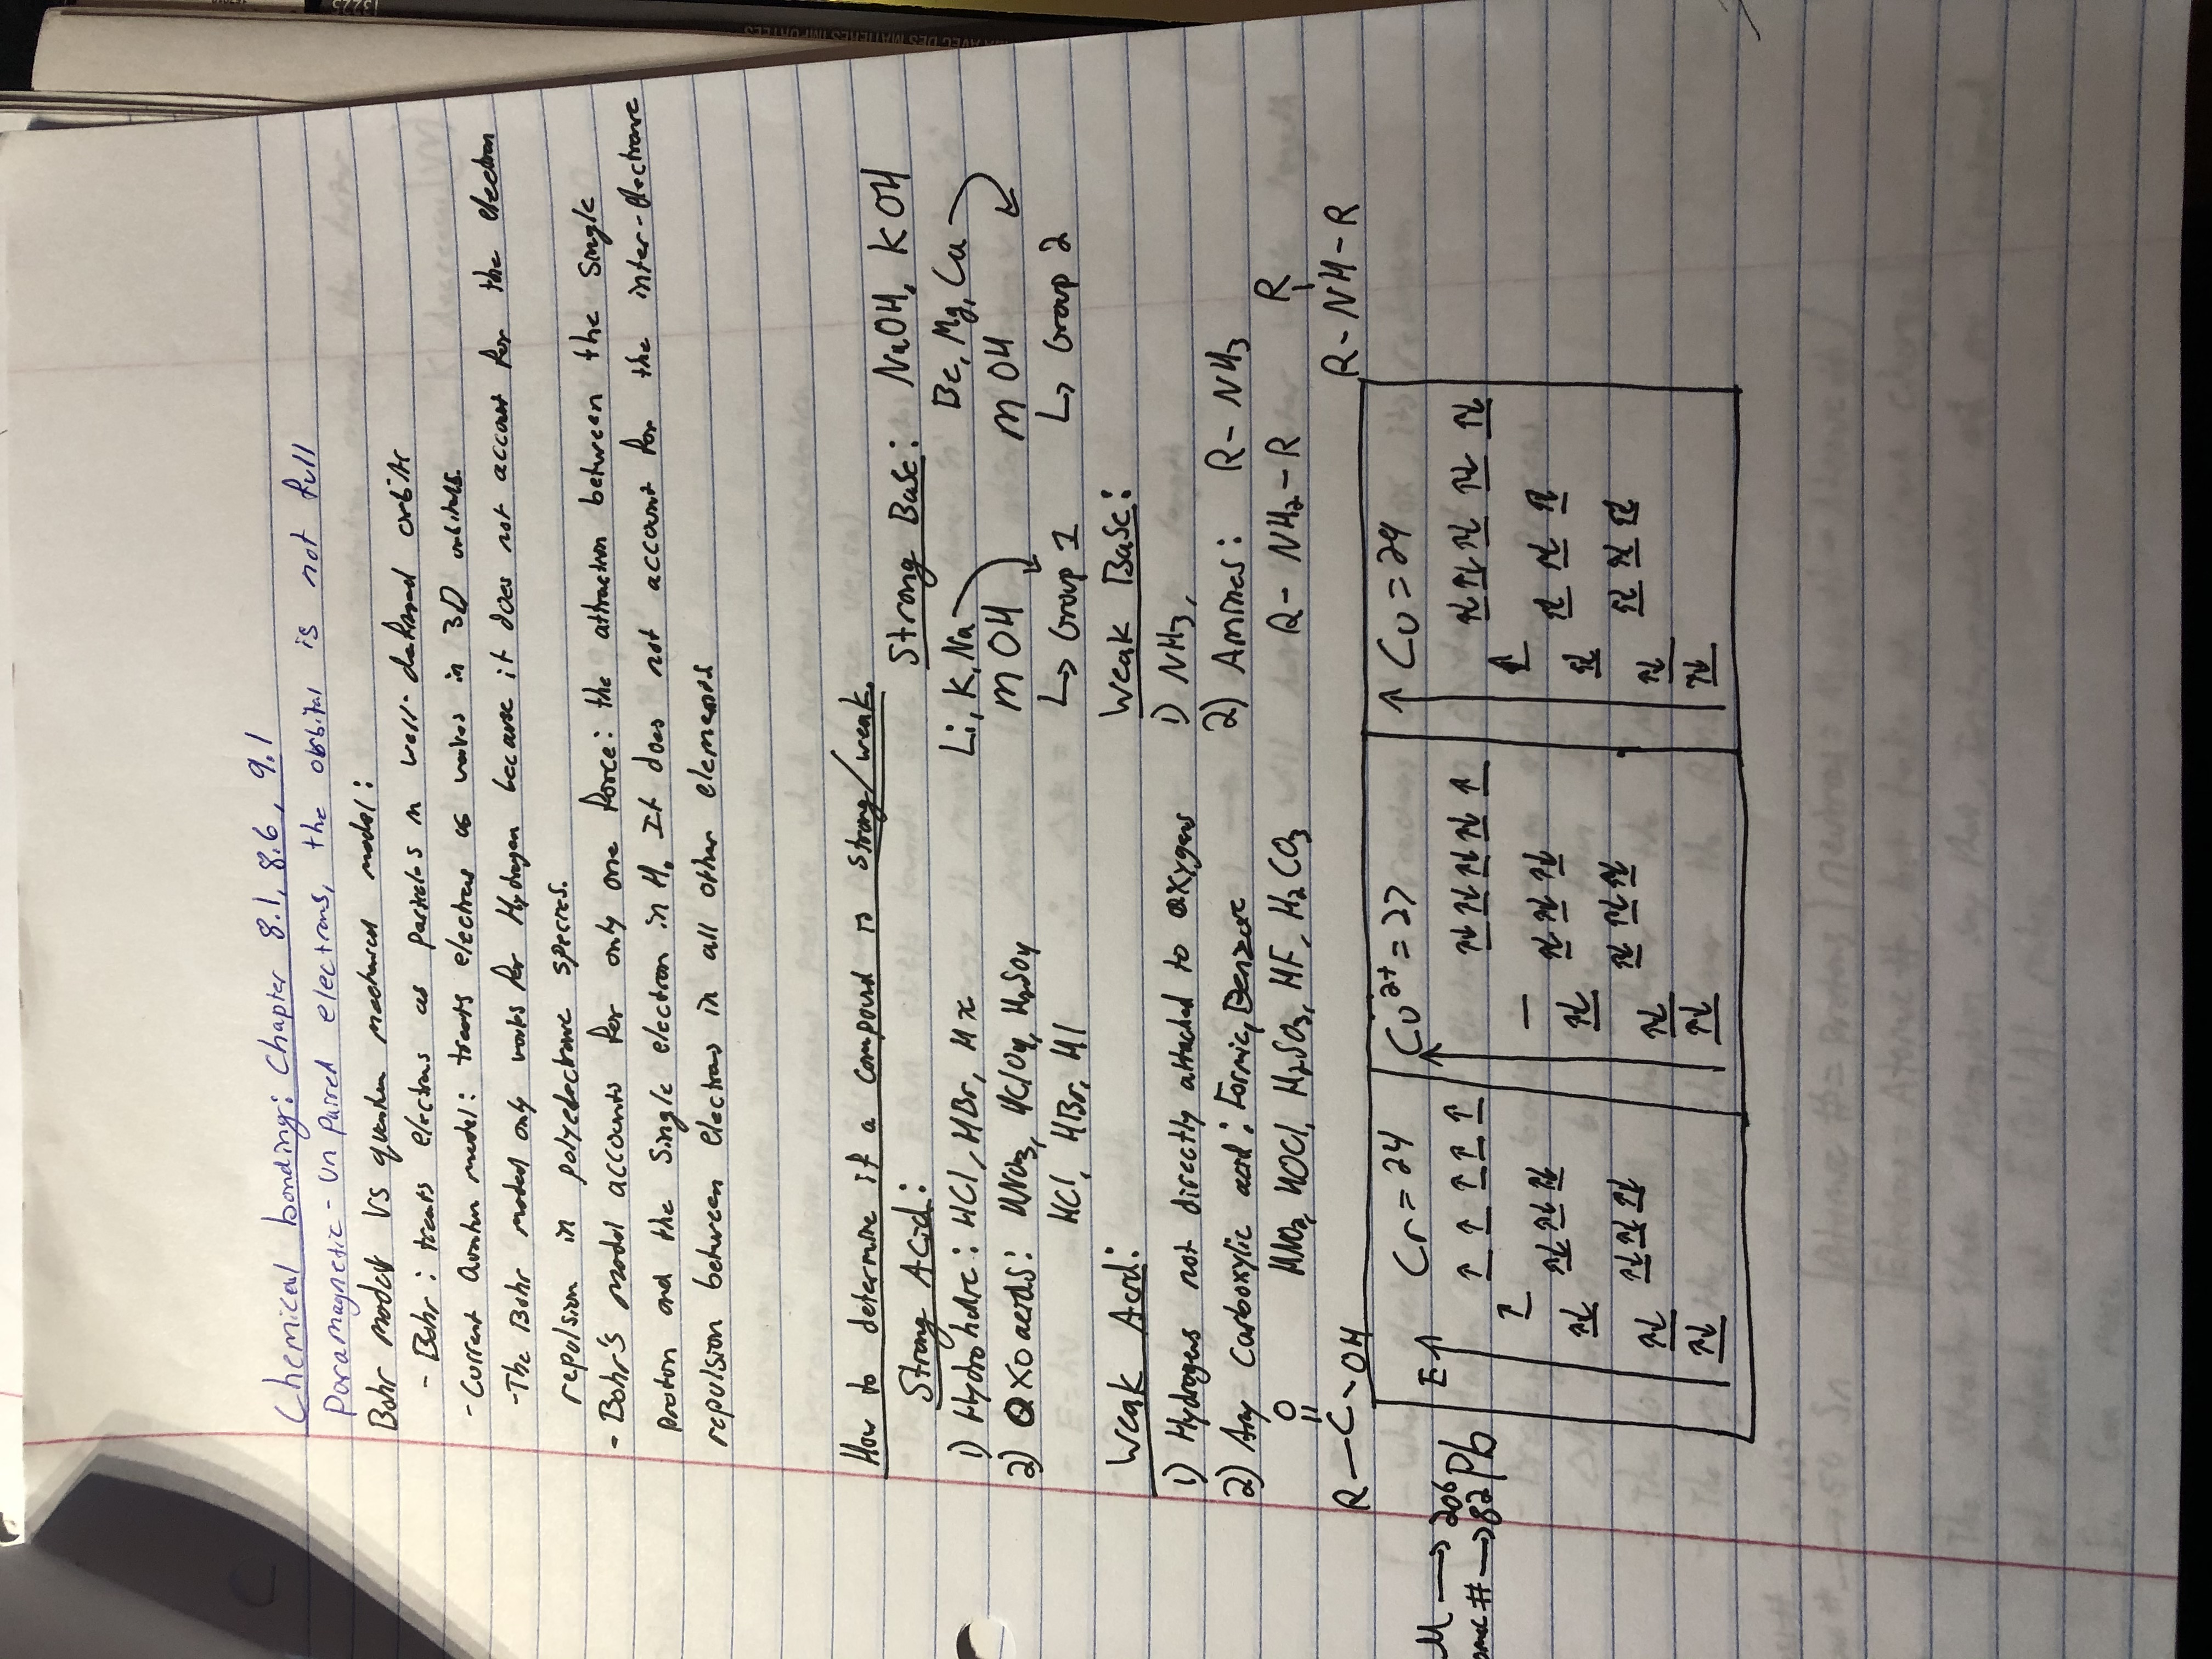 Chemical bonding: Chapter 8.1, 8.6, 9.1
Paramagnetic - Un Paired electrons, the orbital is not full
Bohr model vs quantum mechanical model:
- Bohr: treats electrons as particles in well-defined orbits
- Current Quantum model: treats electrons as waves in 3D orbitals.
- The Bohr model only works for Hydrogen because it does not account for the electron
repulsion in polyelectronic species.
- Bohr's model accounts for only one force: the attraction between the single
proton and the single electron in H. It does not account for the inter-electronic
repulsion between electrons in all other elements
How to determine if a compound is strong/weak.
Strong Acid:
1) Hydrohalic: HCl, HBr, Hx
2) Oxoacids: HNO3, HClO4, H2SO4
HCl, HBr, HI
Strong Base: NaOH, KOH
Li, K, Na
MOH
↳ Group 1
Be, Mg, Ca
MOH
↳ Group 2
Weak Acid:
1) Hydrogens not directly attached to oxygens
2) Any Carboxylic acid: Formic, Benzoic
HNO2, HOCl, H2SO3, HF, H2CO3
O
R-C-OH
Weak Base:
1) NH3,
2) Amines: R-NH3
R-NH2-R
R
R-NH-R
M → 206 Pb
# → 82
E↑ Cr = 24
↑ ↑ ↑ ↑ ↑
↑
↑↓ ↑↓ ↑↓ ↑↓
↑↓ ↑↓ ↑↓ ↑↓
↑↓
↑ Cu2+ = 27
↑↓ ↑↓ ↑↓ ↑↓ ↑
—
↑↓ ↑↓ ↑↓ ↑↓
↑↓ ↑↓ ↑↓ ↑↓
↑↓
↑ Cu = 29
↑↓ ↑↓ ↑↓ ↑↓ ↑↓
↑
↑↓ ↑↓ ↑↓ ↑↓
↑↓ ↑↓ ↑↓ ↑↓
↑↓
AVEC DES MATIÈRES IMPORTÉES
13225